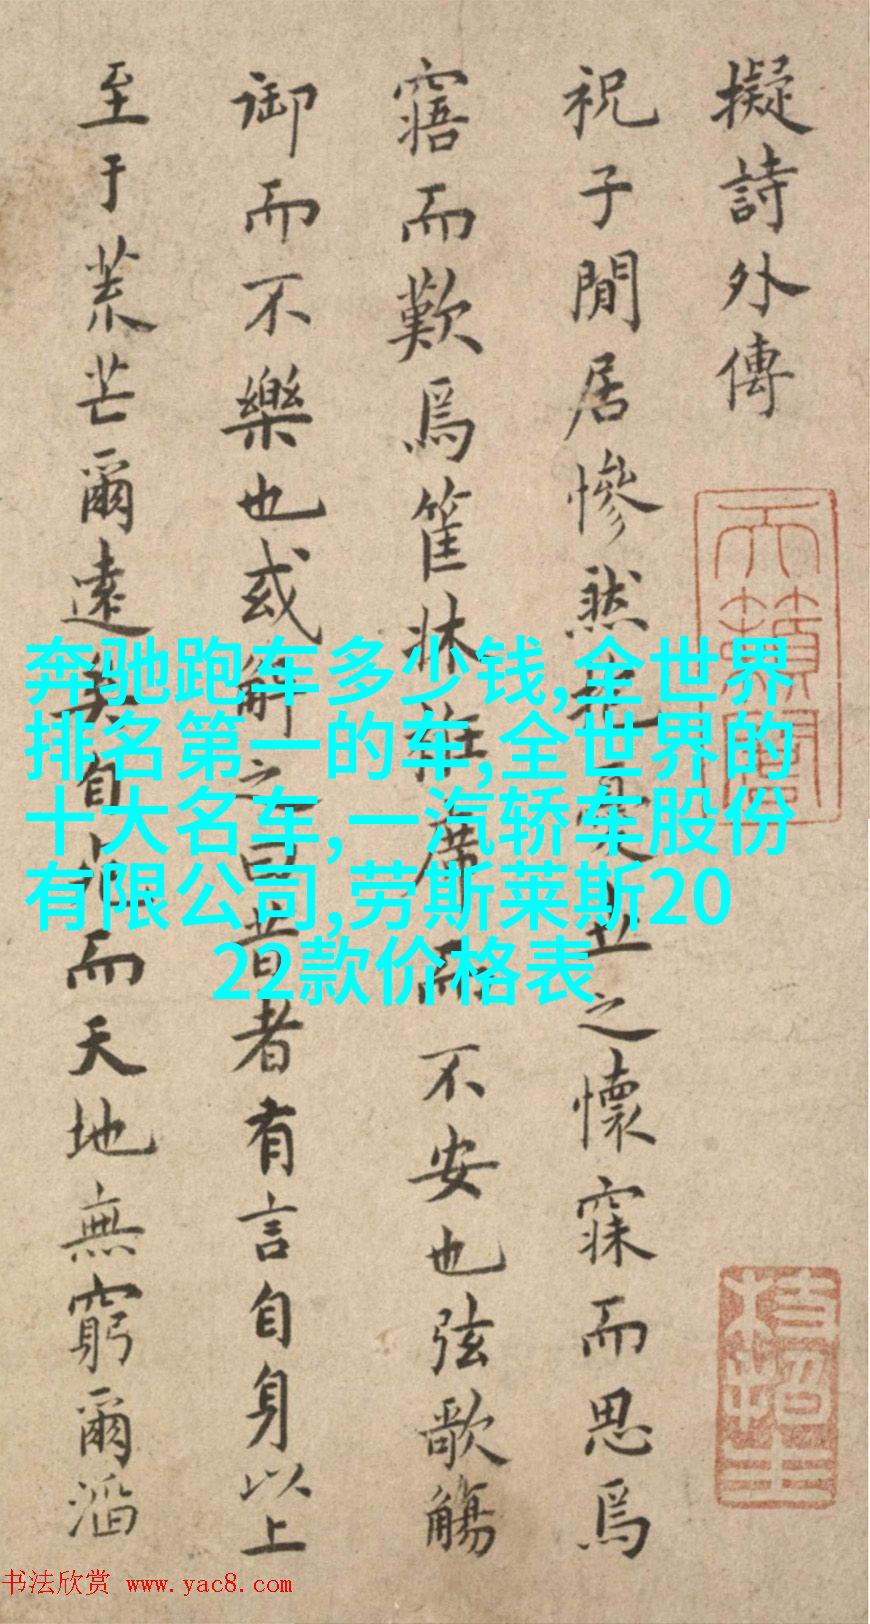 擬詩外傳
祝子閒居慘然憂世之懷寐而思焉
寤而歎焉筐牀衽席而不安也弦歌觴
御而不樂也或解之曰昔者有言自身以上
至于荒芒爾遠矣自此而天地無窮爾滔
天籟閣
枝指生
奔驰跑车多少钱,全世界
排名第一的车,全世界的
十大名车,一汽轿车股份
有限公司,劳斯莱斯20
22款价格表
书法欣赏 www.yac8.com